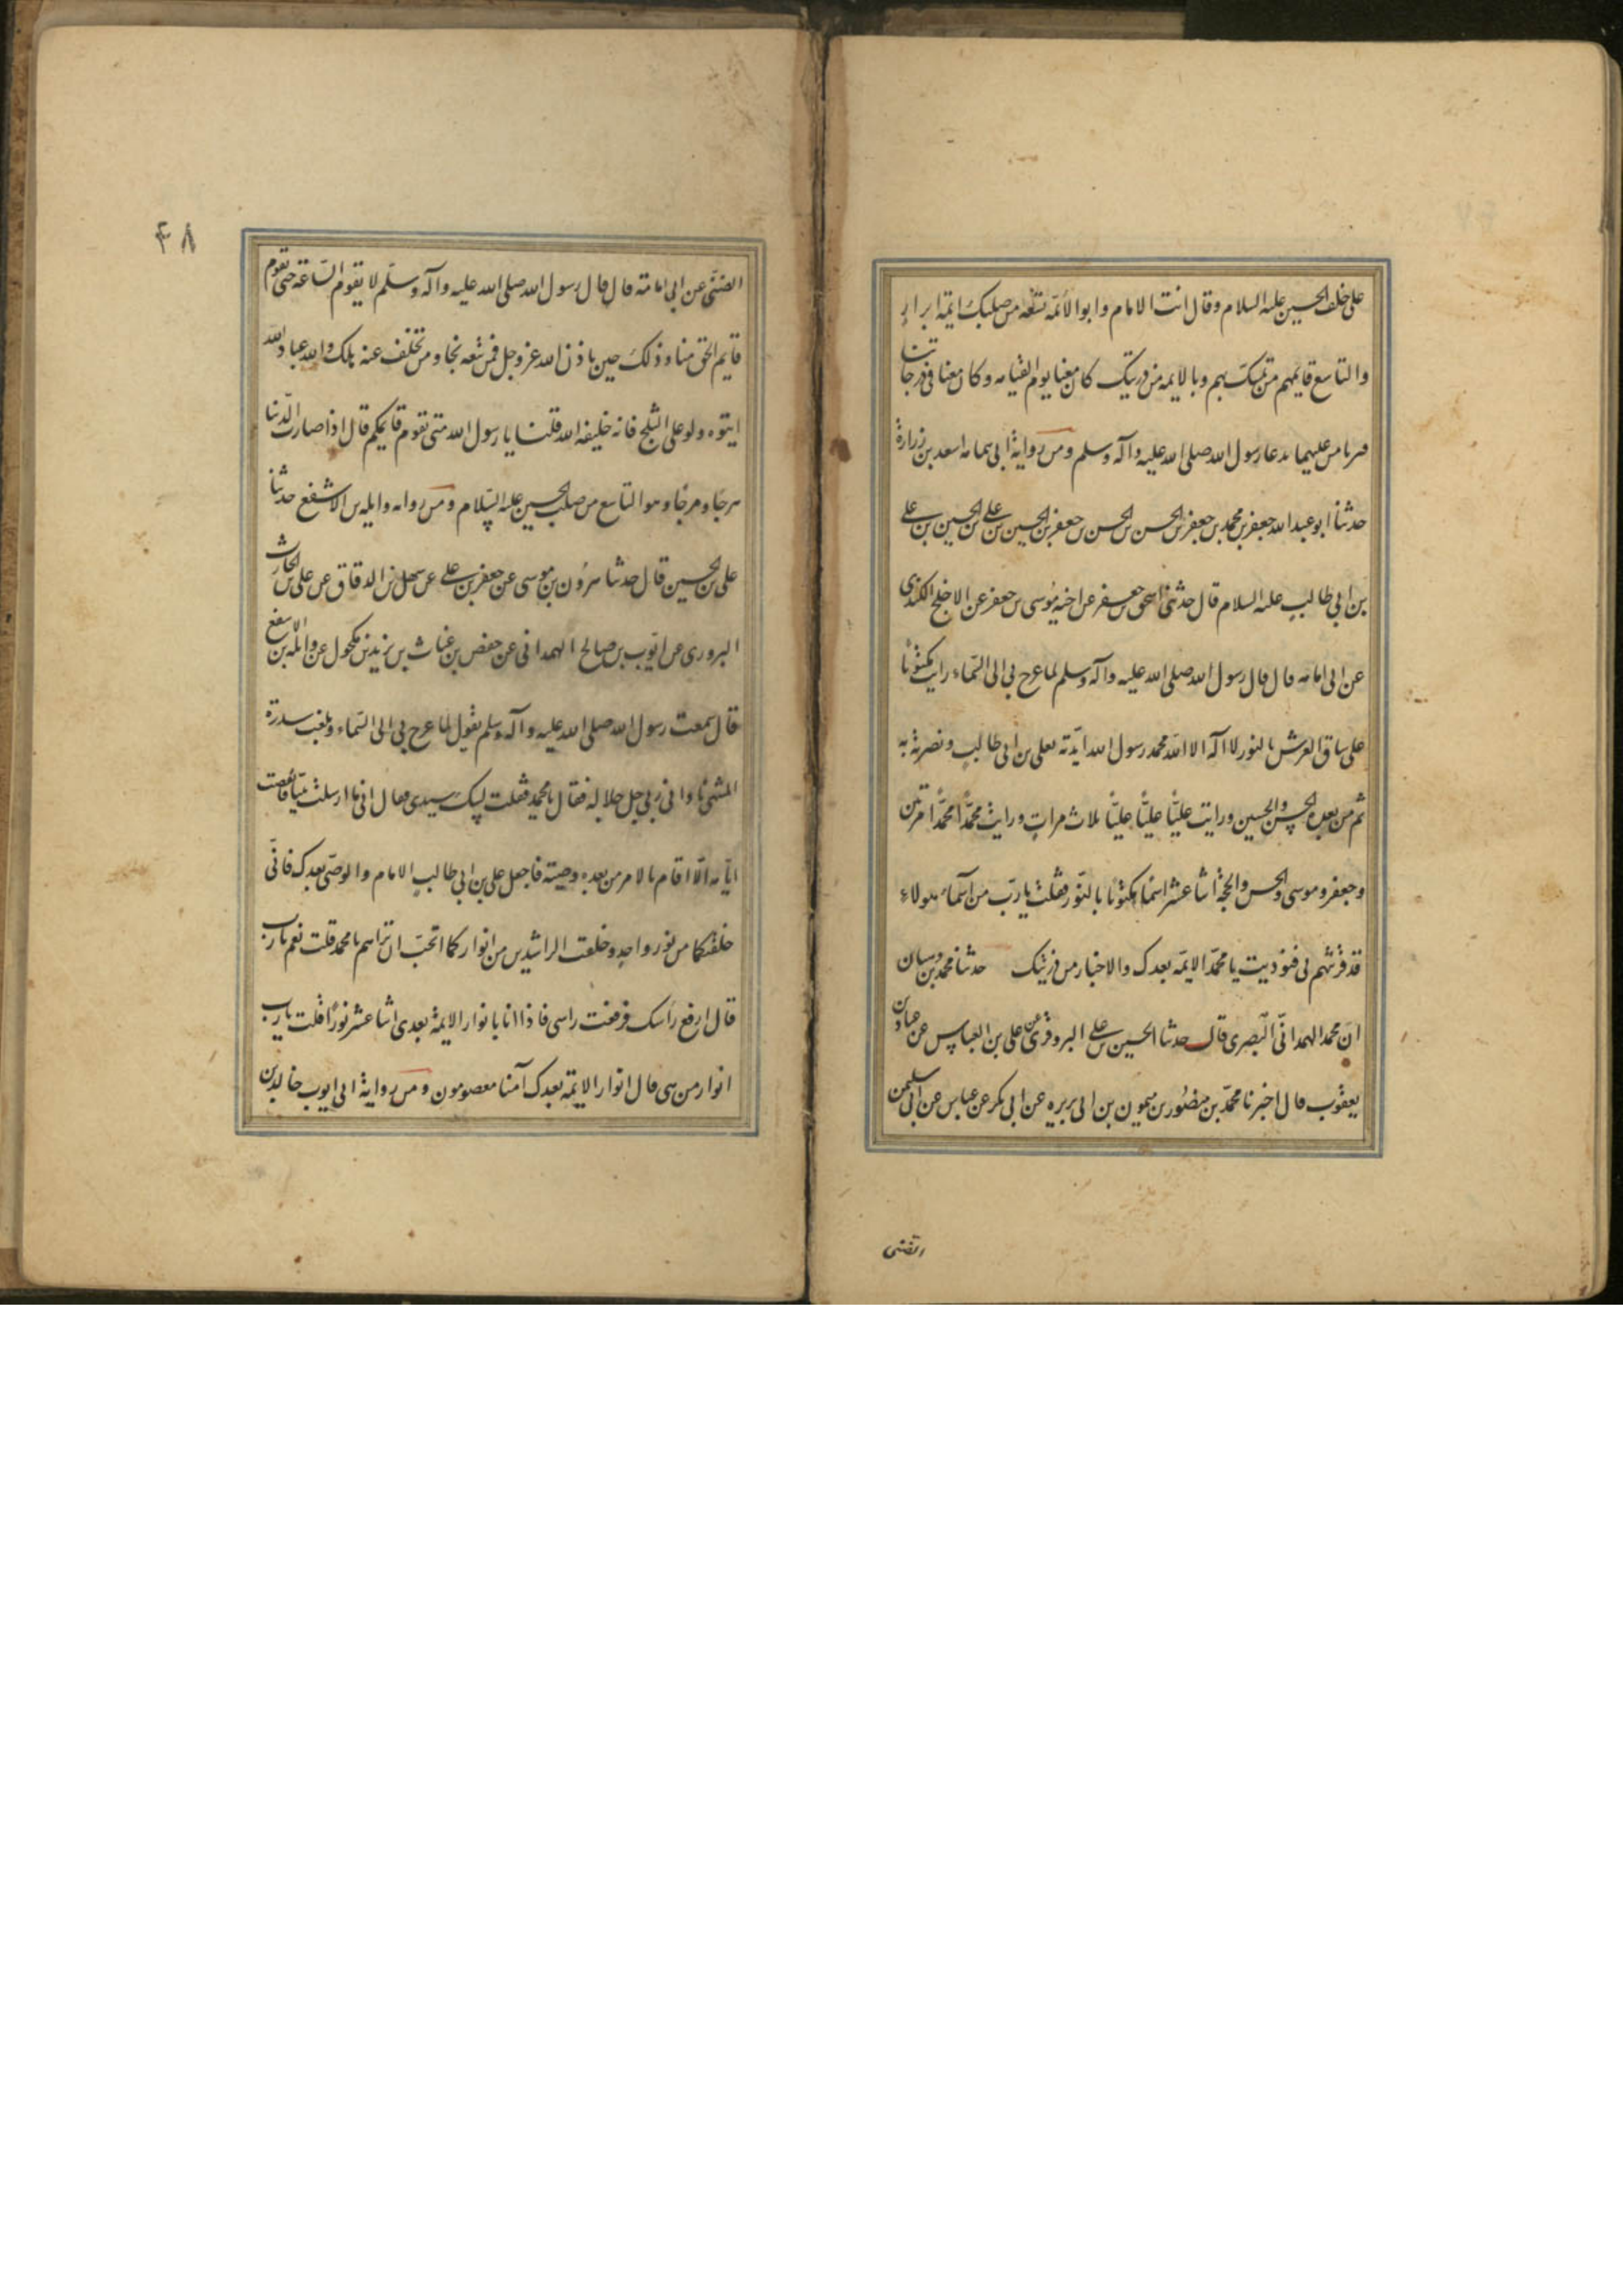 على خلف الحسين عليه السلام وقال انت الامام وابو الائمّة تسعه من صلبك ايمّة ابرار
والتاسع قايمهم من تمسّك بهم وبالايمه من ذريتك كان معنا يوم القيامه وكان معنا فى درجاتنا
عليهما بدعا رسول الله صلى الله عليه وآله وسلم ومن رواية ابى امامه اسعد بن زرارة
حدثنا ابو عبد الله جعفر بن محمد بن جعفر بن الحسن بن الحسن بن جعفر بن الحسين بن على بن الحسين بن على
بن ابى طالب عليه السلام قال حدثنى اسحق بن جعفر عن اخيه موسى بن جعفر عن الاجلح الكندى
عن ابى امامه قال قال رسول الله صلى الله عليه وآله وسلم لما عرج بى الى السّماء رايت مكتوبًا
على ساق العرش بالنور لا اله الا الله محمد رسول الله ايّدته بعلى بن ابى طالب ونصرته به
ثم من بعده الحسن والحسين ورايت عليًّا عليًّا عليًّا ثلاث مرات ورايت محمّدًا محمّدًا مرتين
وجعفر وموسى والحسن والحجة اثنا عشر اسمًا مكتوبًا بالنّور فقلت يا ربّ من اسماء هولاء
قد قرنتهم لى فنوديت يا محمّد الايمّه بعدك والاخيار من ذريتك حدثنا محمد بن وهبان
ان محمد الهمدانى البصرى قال حدثنا الحسين بن على البزوفرى عن على بن العباس عن عباد بن
يعقوب قال اخبرنا محمّد بن منصور بن ميمون بن ابى بريره عن ابى بكر عن عباس عن ابى سليمن
الضبّى
٤٨
الضبّى عن ابى امامة قال قال رسول الله صلى الله عليه وآله وسلّم لا يقوم السّاعة حتى تقوم
قايم الحق منا وذلك حين ياذن الله عز وجل فمن تبعه نجا ومن تخلف عنه هلك والله الله عباد الله
ايتوه ولو على الثلج فانه خليفه الله قلنا يا رسول الله متى تقوم قايمكم قال اذا صارت الدّنيا
هرجًا ومرجًا وهو التاسع من صلب الحسين عليه السّلام ومن روايه واثله بن الاشفع حدثنا
على بن الحسين قال حدثنا هرون بن موسى عن جعفر بن على عن سهل بن الدقاق عن على بن الحارث
البزورى عن ايّوب بن صالح الهمدانى عن حفص بن غياث بن يزيد بن مكحول عن واثله بن الاسفع
قال سمعت رسول الله صلى الله عليه وآله وسلم يقول لما عرج بى الى السّماء وبلغت سدرة
المنتهى نادانى ربى جل جلاله فقال يا محمد فقلت لبيك سيدى فقال انى ما ارسلت نبيّا فانقضت
ايّامه الّا اقام بالامر من بعده وصيّه فاجعل على بن ابى طالب الامام والوصى بعدك فانّى
خلقتكما من نور واحد وخلقت الراشدين من انواركما اتحبّ ان تراهم يا محمد قلت نعم يا رب
قال ارفع رأسك فرفعت راسى فاذا انا بانوار الايمة بعدى اثنا عشر نورًا قلت يا رب
انوار من هى قال انوار الايمّة بعدك آمنا معصومون ومن رواية ابى ايوب خالد بن